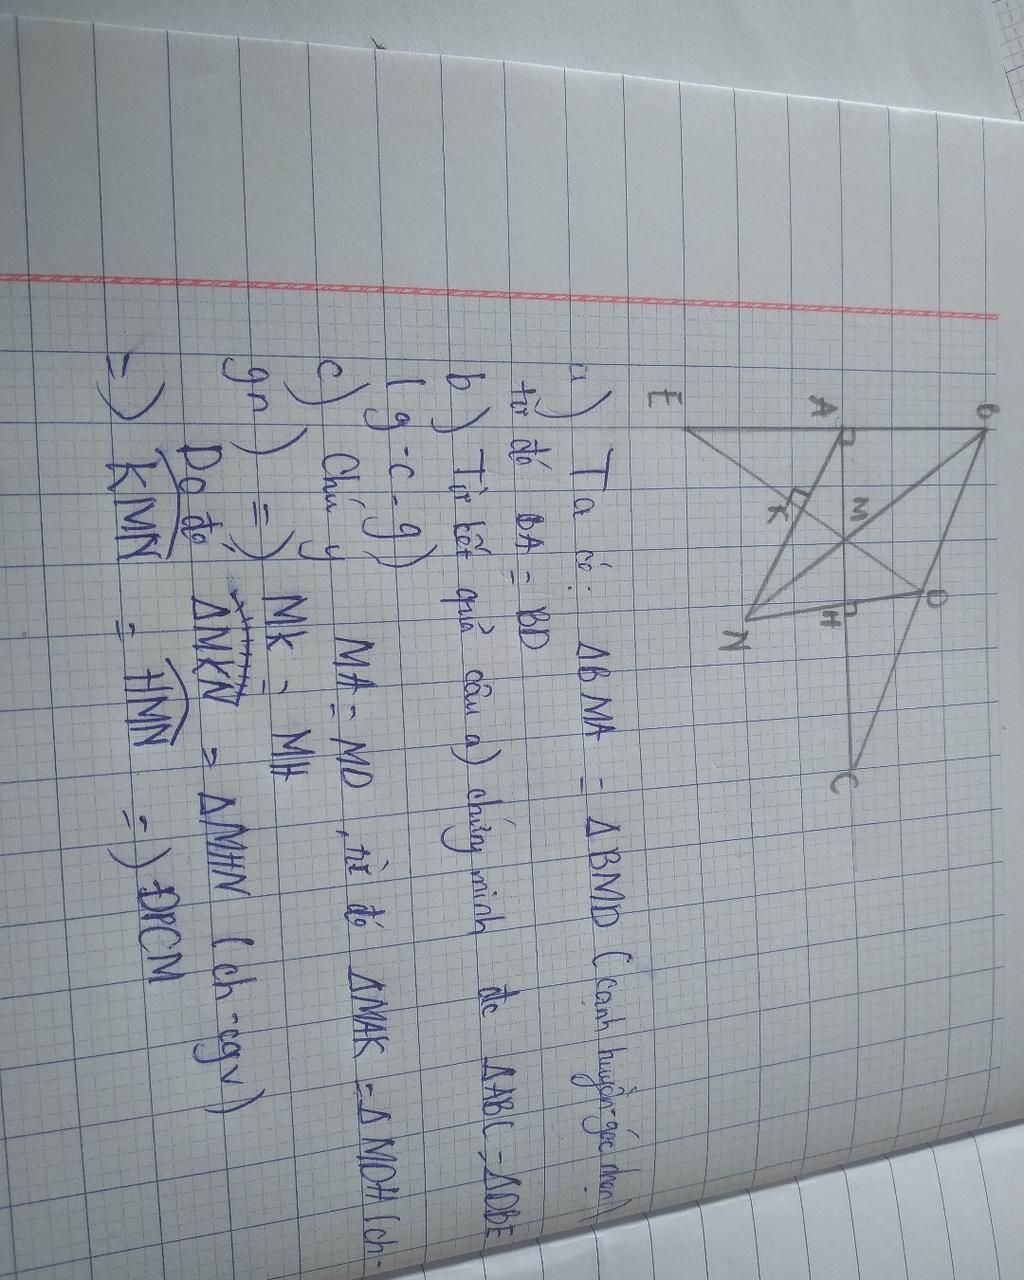 B
D
A
M
H
C
K
E
N
a) Ta có: ΔBMA = ΔBMD (cạnh huyền-góc nhọn)
từ đó BA = BD
b) Từ kết quả câu a) chứng minh đc ΔABC = ΔDBE
(g-c-g)
c) Chú ý MA = MD, từ đó ΔMAK = ΔMDH (ch-
gn) => MK = MH
Do đó ΔMKN = ΔMHN (ch-cgv)
=> \widehat{KMN} = \widehat{HMN} => ĐPCM